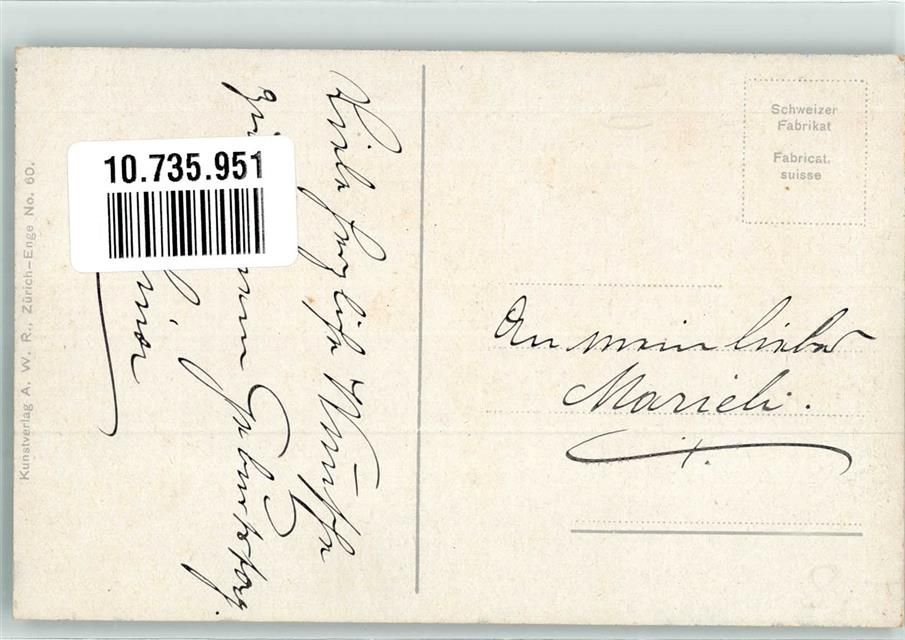 Kunstverlag A. W. R., Zürich-Enge No. 60.
10.735.951
Viele herzliche Wünsche
Geburtstag.
Schweizer
Fabrikat
Fabricat.
suisse
An mein liebes
Marieli.